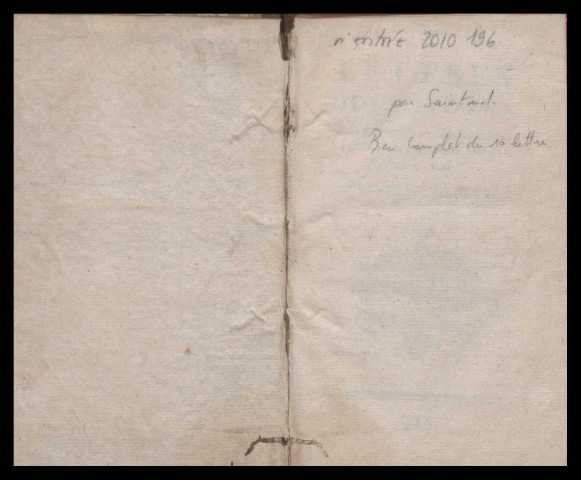 n° entrée 2010 196
par Saintard.
Bien complet du 10 lettre